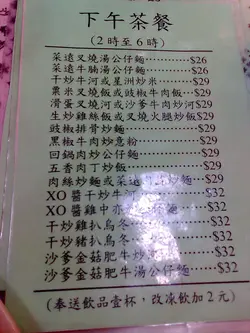 下午茶餐
(2時至6時)
菜遠叉燒湯公仔麵………$26
菜遠牛腩湯公仔麵………$26
干炒牛河或星洲炒米………$29
粟米叉燒飯或豉椒牛肉飯…$29
滑蛋叉燒河或沙爹牛肉炒河$29
生炒雞絲飯或叉燒火腿炒飯$29
豉椒排骨炒麵………$29
黑椒牛肉炒意粉………$29
回鍋肉炒公仔麵………$29
五香肉丁炒飯………$29
肉絲炒麵或菜遠 $29
XO醬干炒牛河………$32
XO醬雞中亦 $32
干炒雞扒烏冬………$32
干炒豬扒烏冬………$32
沙爹金菇肥牛炒 $32
沙爹金菇肥牛湯公仔麵…$32
(奉送飲品壹杯，改凍飲加2元)